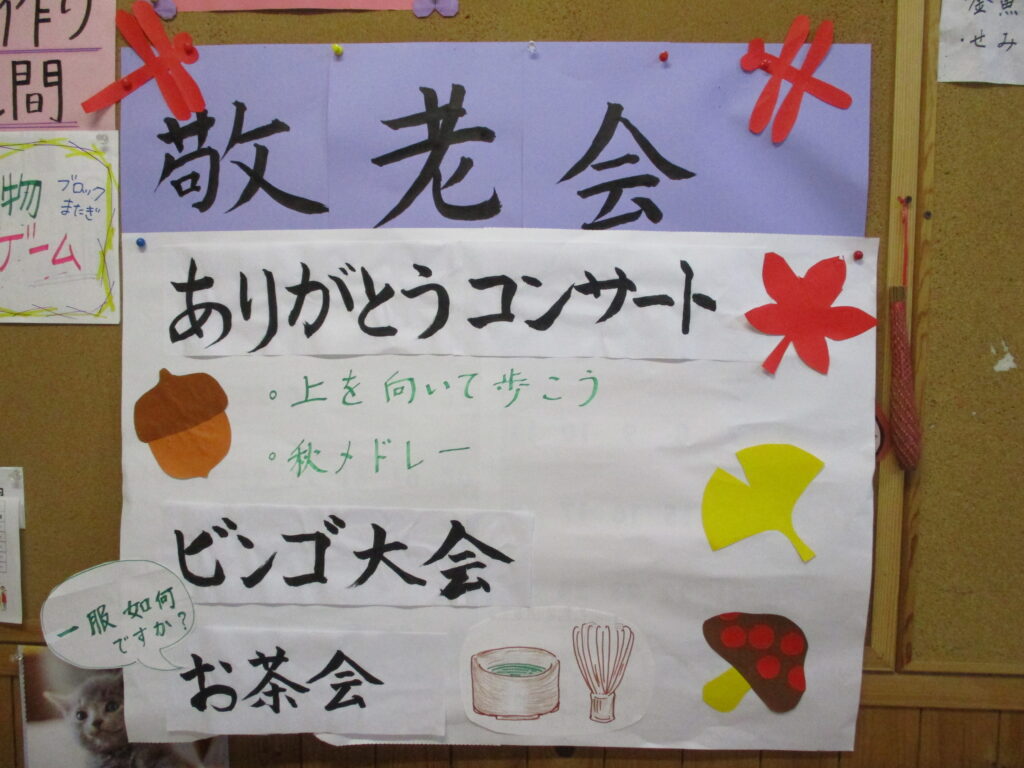 作り
間
物
ブロック
またぎ
ゲーム
金魚
・せみ
敬老会
ありがとうコンサート
。上を向いて歩こう
。秋メドレー
ビンゴ大会
一服如何
ですか?
お茶会